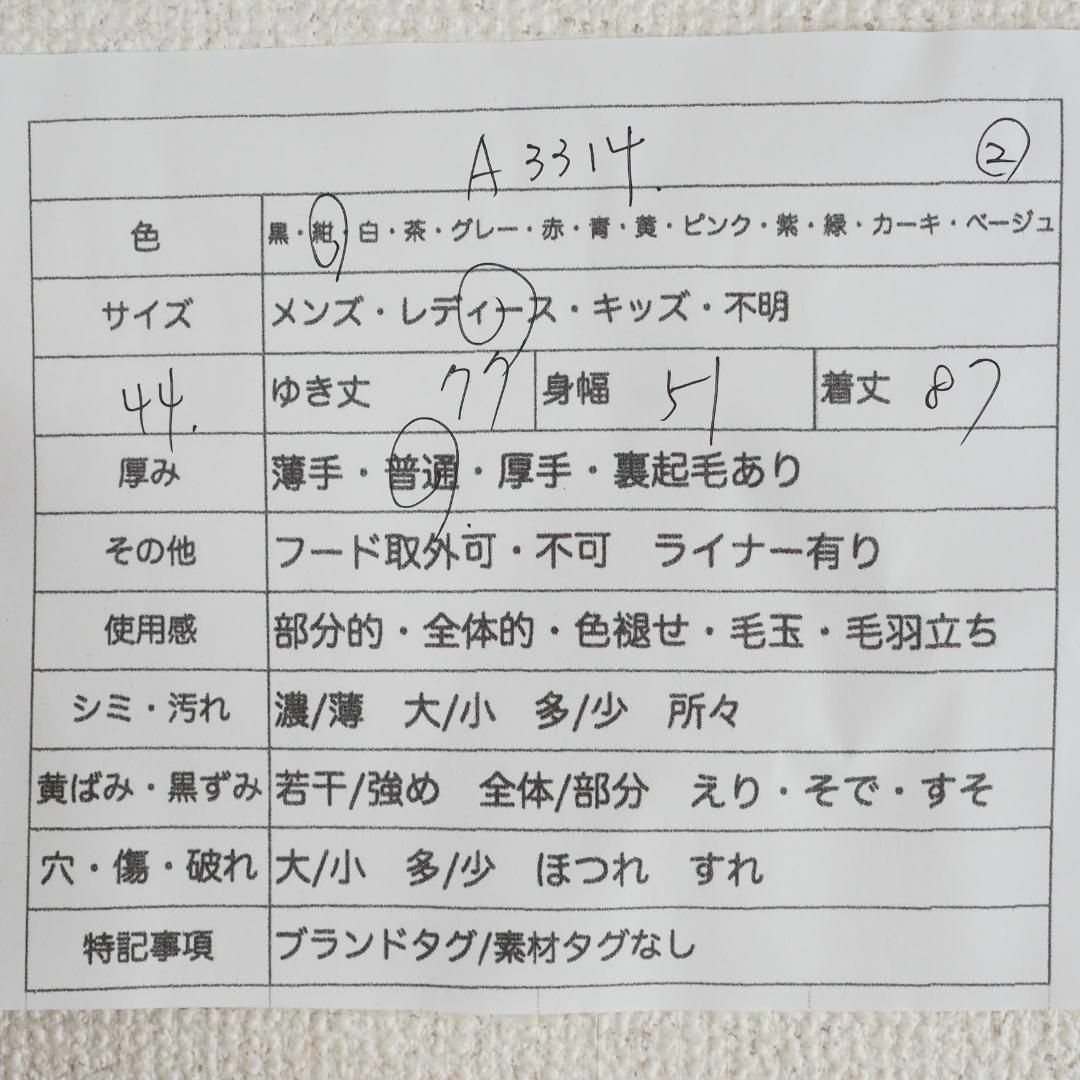 A3314. ②
色 黒・紺・白・茶・グレー・赤・青・黄・ピンク・紫・緑・カーキ・ベージュ
サイズ メンズ・レディース・キッズ・不明
44. ゆき丈 77 身幅 51 着丈 87
厚み 薄手・普通・厚手・裏起毛あり
その他 フード取外可・不可 ライナー有り
使用感 部分的・全体的・色褪せ・毛玉・毛羽立ち
シミ・汚れ 濃/薄 大/小 多/少 所々
黄ばみ・黒ずみ 若干/強め 全体/部分 えり・そで・すそ
穴・傷・破れ 大/小 多/少 ほつれ すれ
特記事項 ブランドタグ/素材タグなし